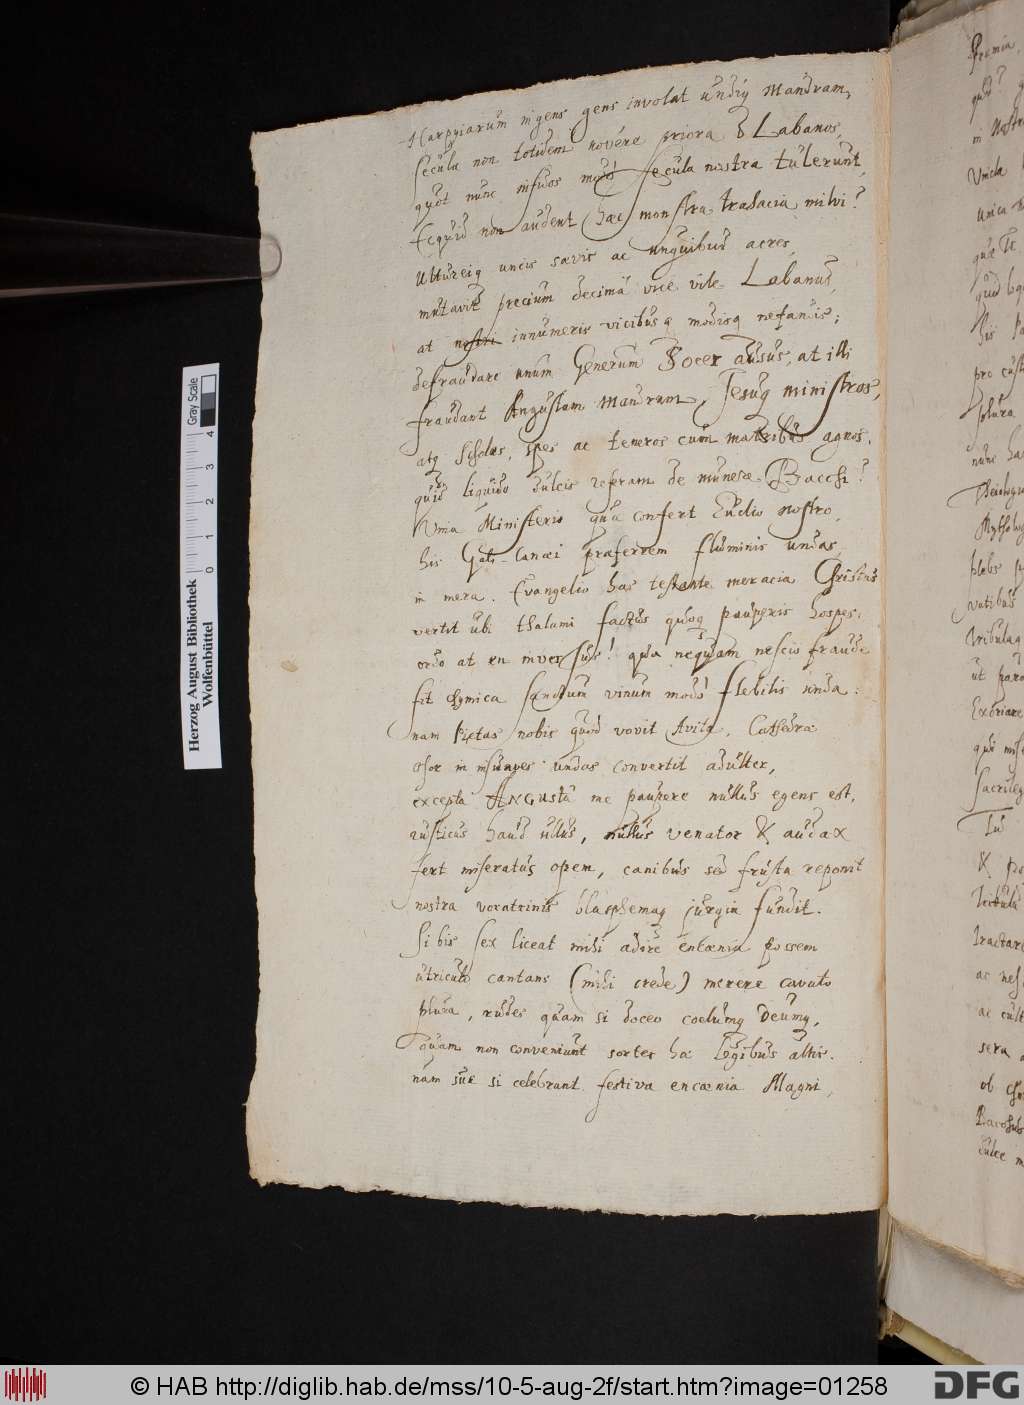 Harpyiarum ingens gens involat undiq Mandram,
secula non totidem novére priora Labanos,
quot nunc infidos modò secula nostra tulerunt,
Ecquid non audent hæc monstra tradacia milvi?
Vultureiq uncis sævis ac unguibus acres,
mutavit precium decimâ vice vile Labanus,
at nostri innumeris vicibusq modisq nefandis;
defraudare unum Generum Socer ausus, at illi
fraudant Angustam Mandram, Jesuq ministros,
atq Scholas, spes ac teneros cum matribus agnos.
quid liquido dulcis referam de munere Bacchi?
Vina Ministerio quæ confert Euclio nostro,
his præferrem fluminis undas,
in mera. Evangelio has testante meracia Christus
vertit ubi thalami factus quoq pauperis hospes.
ordo at en inversus! quia nequam nescio fraude
fit chymica sanctum vinum modò flebilis unda:
nam Pietas nobis quod vovit Avita, Cathedræ
osor in insunpes undas convertit adulter,
exceptâ Angustâ me paupere nullus egens est,
rusticus haud ullus, nullus venator & audax
fert miseratus opem, canibus sed frusta reponit
nostra voratrinis blasphemaq jurgia fundit.
Si bis sex liceat mihi adire encænia possem
utriculo cantans (mihi crede) merere cavato
plura, rudes quam si doceo coelumq Deumq,
quam non conveniunt sortes hæ legibus altis.
nam sue si celebrant festiva encænia Magni,
Præmia,
quid?
in Nostr
Unida
unica
quæ Te
his
pro cust
solura
nunc ha
Theolog
Mytholog
plebs
vatibus
tribulaq
ut para
Exoriare
qui mise
sacrileg
Tu
& po
Tractare
ac cult
sera
Bacchus
dulce m
Herzog August Bibliothek
Wolfenbüttel
0 1 2 3 4
Gray Scale
© HAB http://diglib.hab.de/mss/10-5-aug-2f/start.htm?image=01258
DFG